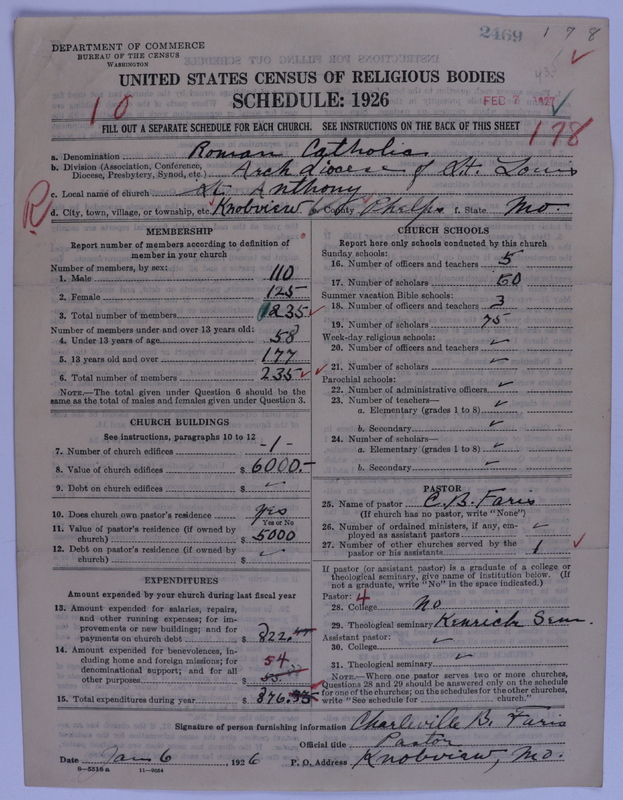 2469 178
DEPARTMENT OF COMMERCE
BUREAU OF THE CENSUS
WASHINGTON
UNITED STATES CENSUS OF RELIGIOUS BODIES
SCHEDULE: 1926
10
FEB 7 1927
FILL OUT A SEPARATE SCHEDULE FOR EACH CHURCH. SEE INSTRUCTIONS ON THE BACK OF THIS SHEET
178
a. Denomination Roman Catholic
b. Division (Association, Conference, Diocese, Presbytery, Synod, etc.) Archdiocese of St. Louis
c. Local name of church St. Anthony
R
d. City, town, village, or township, etc. Knobview e. County Phelps f. State Mo.
MEMBERSHIP
Report number of members according to definition of
member in your church
Number of members, by sex:
1. Male 110
2. Female 125
3. Total number of members 235
Number of members under and over 13 years old:
4. Under 13 years of age 58
5. 13 years old and over 177
6. Total number of members 235
NOTE.—The total given under Question 6 should be
same as the total of males and females given under Question 3.
CHURCH BUILDINGS
See instructions, paragraphs 10 to 12
7. Number of church edifices -1-
8. Value of church edifices $ 6000.-
9. Debt on church edifices $
10. Does church own pastor's residence yes
Yes or No
11. Value of pastor's residence (if owned by
church) $ 5000
12. Debt on pastor's residence (if owned by
church) $
EXPENDITURES
Amount expended by your church during last fiscal year
13. Amount expended for salaries, repairs,
and other running expenses; for im-
provements or new buildings; and for
payments on church debt $ 822.
14. Amount expended for benevolences, in-
cluding home and foreign missions; for
denominational support; and for all
other purposes $ 54
15. Total expenditures during year $ 876.35
CHURCH SCHOOLS
Report here only schools conducted by this church
Sunday schools:
16. Number of officers and teachers 5
17. Number of scholars 60
Summer vacation Bible schools:
18. Number of officers and teachers 3
19. Number of scholars 75
Week-day religious schools:
20. Number of officers and teachers
21. Number of scholars
Parochial schools:
22. Number of administrative officers
23. Number of teachers—
a. Elementary (grades 1 to 8)
b. Secondary
24. Number of scholars—
a. Elementary (grades 1 to 8)
b. Secondary
PASTOR
25. Name of pastor C. B. Faris
(If church has no pastor, write "None")
26. Number of ordained ministers, if any, em-
ployed as assistant pastors
27. Number of other churches served by the
pastor or his assistants 1
If pastor (or assistant pastor) is a graduate of a college or
theological seminary, give name of institution below. (If
not a graduate, write "No" in the space indicated.)
Pastor: 4
28. College no
29. Theological seminary Kenrick Sem.
Assistant pastor:
30. College
31. Theological seminary
NOTE.—Where one pastor serves two or more churches,
Questions 28 and 29 should be answered only on the schedule
for one of the churches; on the schedules for the other churches,
write "See schedule for church."
Signature of person furnishing information Charleville B. Faris
Official title Pastor
Date Jan 6, 1926 P. O. Address Knobview, Mo.
8—5516 a 11—9024